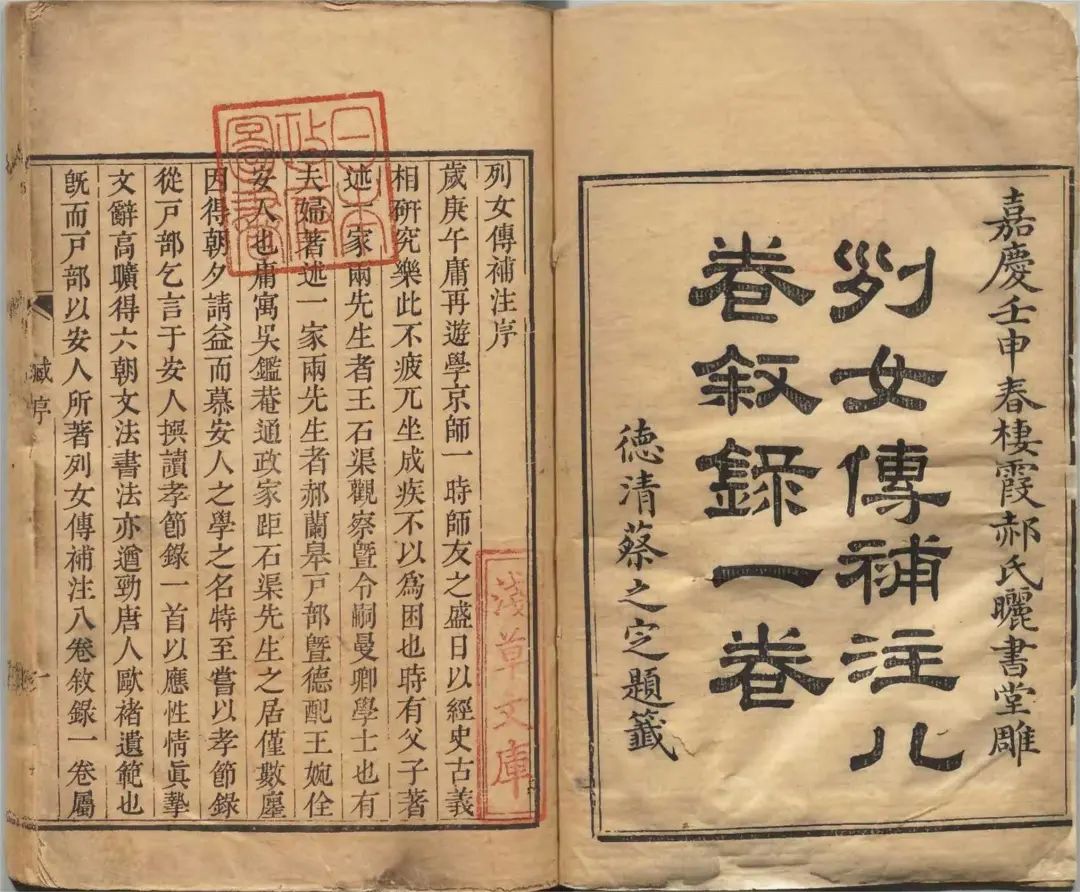 嘉慶壬申春棲霞郝氏曬書堂雕
列女傳補注八
卷敘錄一卷
德清蔡之定題籤
列女傳補注序
歲庚午庸再遊學京師一時師友之盛日以經史古義
相研究樂此不疲兀坐成疾不以為困也時有父子著
述一家兩先生者王石渠觀察曁令嗣曼卿學士也有
夫婦著述一家兩先生者郝蘭皋戸部曁德配王婉佺
安人也庸寓吳鑑菴通政家距石渠先生之居僅數廛
因得朝夕請益而慕安人之學之名特至嘗以孝節錄
從戸部乞言于安人撰讀孝節錄一首以應性情眞摯
文辭高曠得六朝文法書法亦遒勁唐人歐褚遺範也
旣而戸部以安人所著列女傳補注八卷敘錄一卷屬
臧序
一
日本政府圖書
淺草文庫